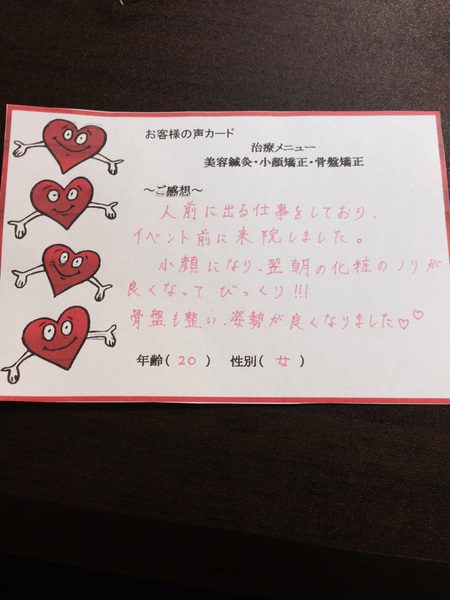 お客様の声カード
治療メニュー
美容鍼灸・小顔矯正・骨盤矯正
～ご感想～
人前に出る仕事をしており、
イベント前に来院しました。
小顔になり、翌朝の化粧のノリが
良くなって びっくり!!!
骨盤も整い、姿勢が良くなりました♡♡
年齢( 20 ) 性別( 女 )